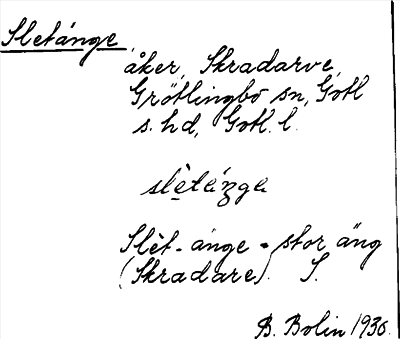 Sletánge,
åker, Skradarve,
Grötlingbo sn, Gotl
s. hd, Gotl. l.
slètánga
Slèt-ánge = stor äng
(Skradare). S.
B. Bolin 1936.